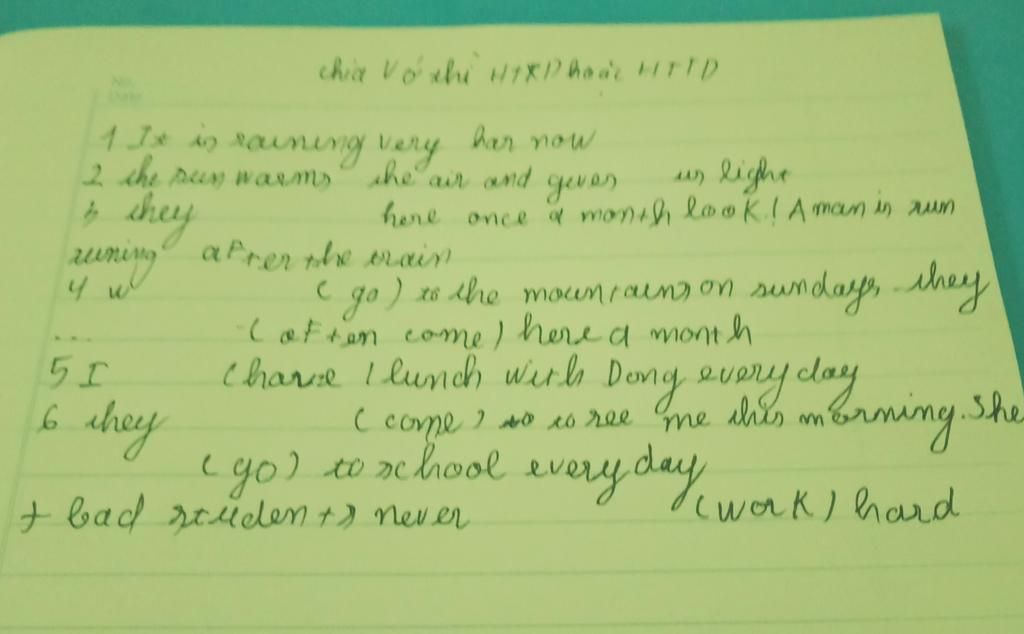 chia V ở thì HTĐ hoặc HTTD
1 It is raining very har now
2 the sun warms the air and gives us light
3 they here once a month look! A man is run
runing after the train
4 w (go) to the mountains on sundays. they
... (often come) here a month
5 I (have) lunch with Dong every day
6 they (come) to to see me this morning. She
(go) to school every day
+ bad students never (work) hard